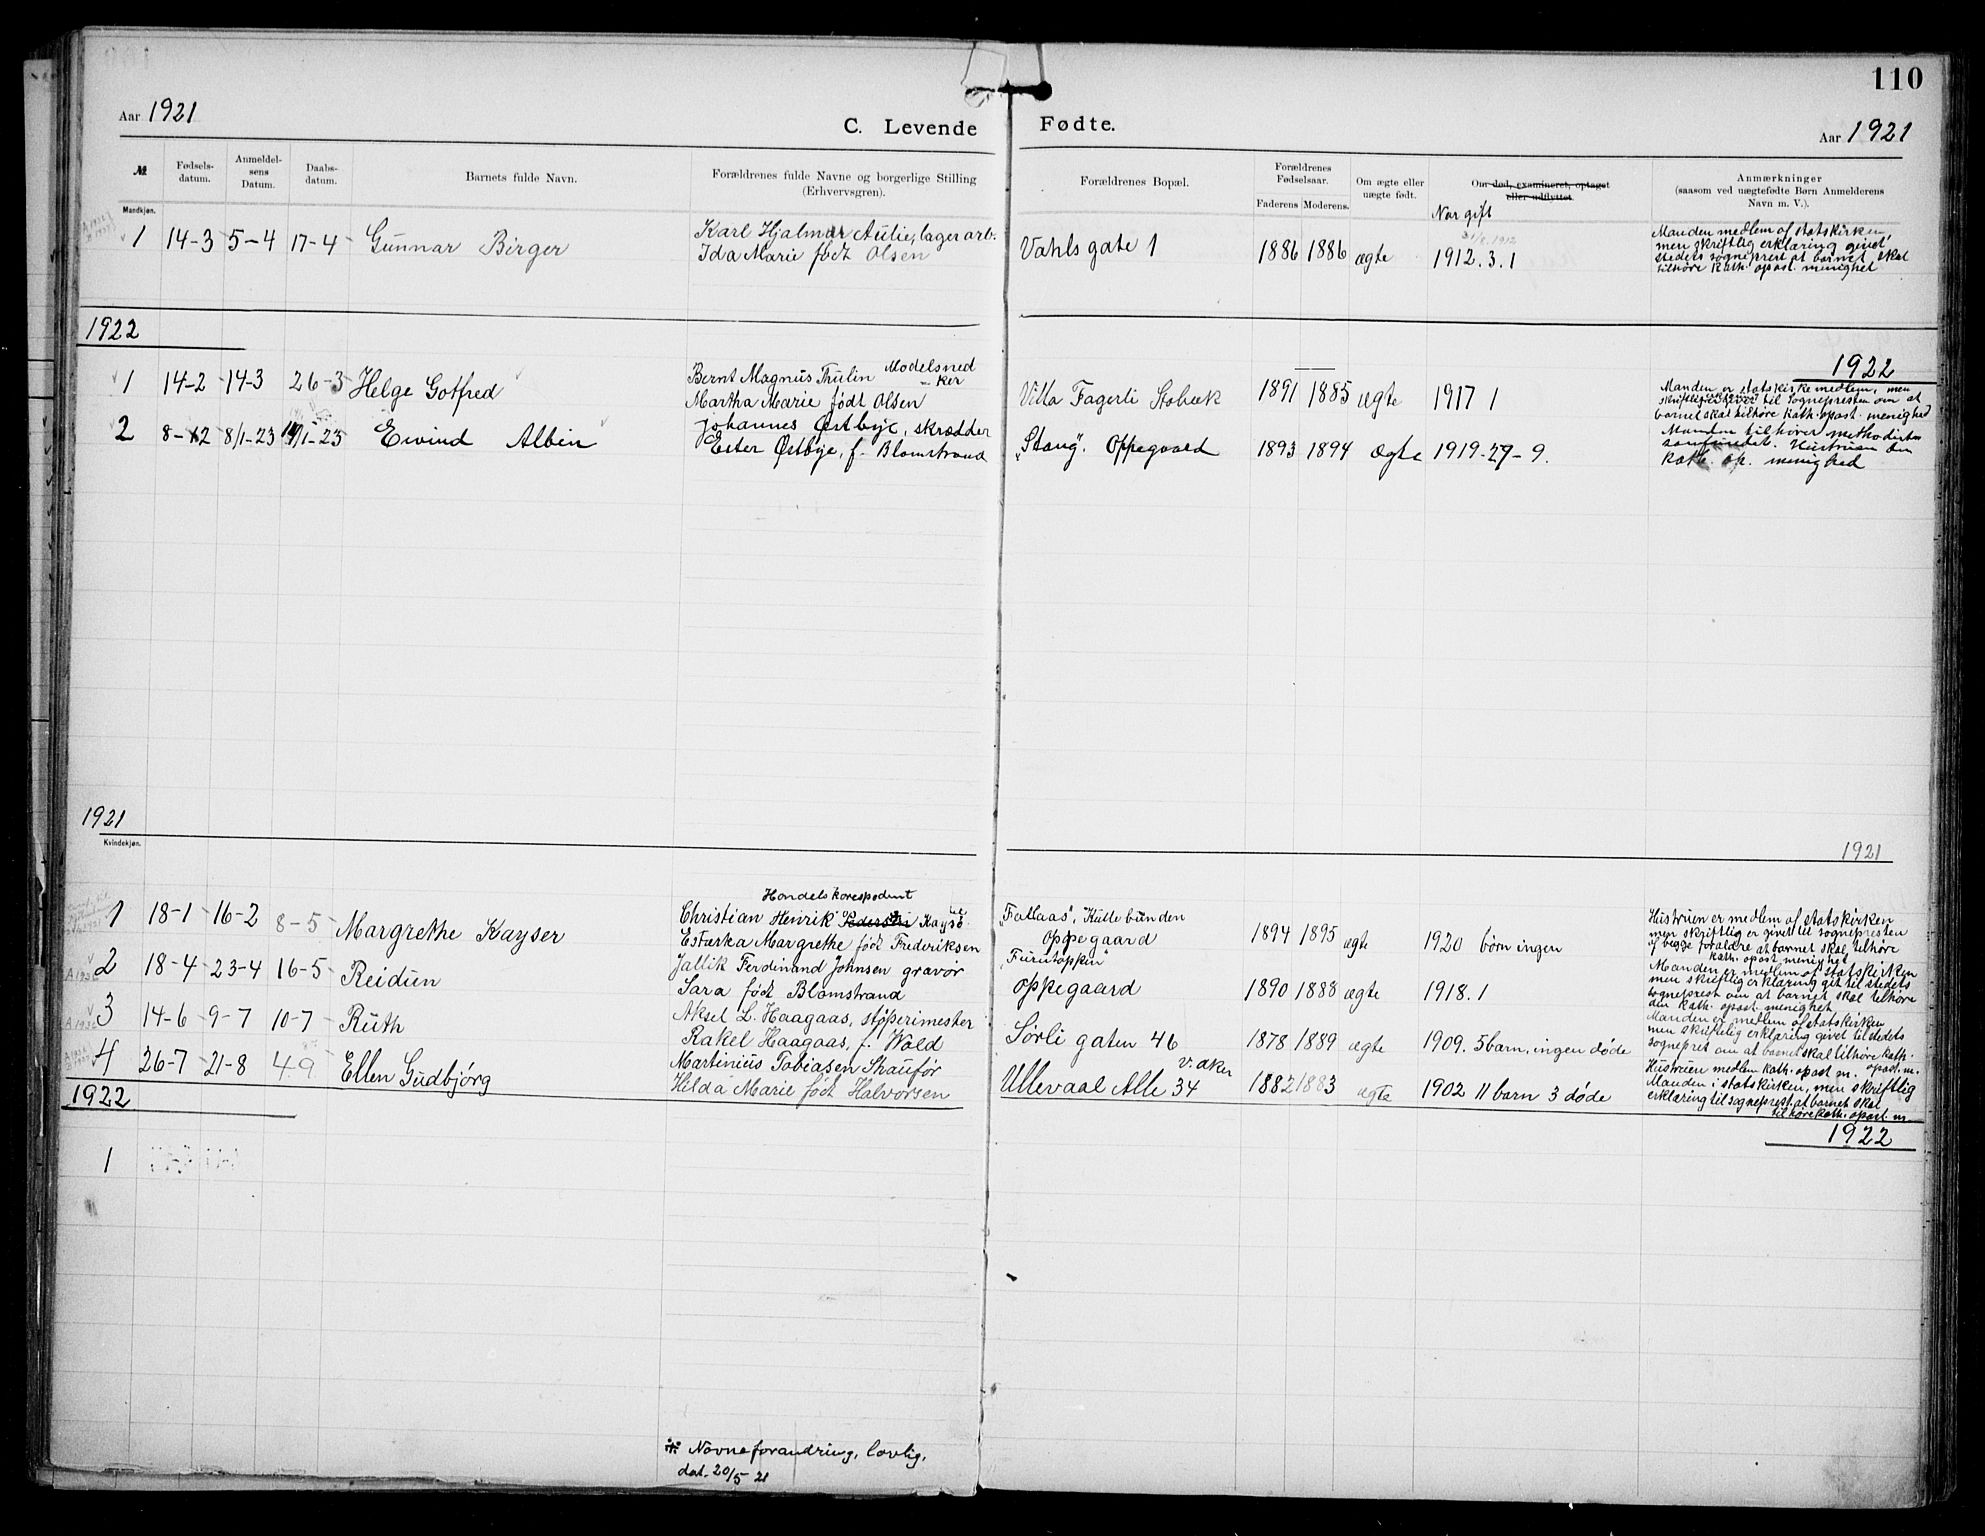 110
Aar 1921
C. Levende Fødte.
Aar 1921
№
Fødsels-
datum.
Anmeldel-
sens
Datum.
Daabs-
datum.
Barnets fulde Navn.
Forældrenes fulde Navne og borgerlige Stilling
(Erhvervsgren).
Forældrenes Bopæl.
Forældrenes
Fødselsaar.
Faderens Moderens.
Om ægte eller
uægte født.
Om død, examineret, optaget
eller udflyttet.
Nar gift
Anmærkninger
(saasom ved uægtefødte Børn Anmelderens
Navn m. V.).
Mandkjøn.
1 14-3 5-4 17-4 Gunnar Birger
Karl Hjalmar Aulie, lagerarb.
Ida Marie født Olsen
Vahls gate 1 1886 1886 ægte 1912.3.1
Manden medlem af statskirken,
men skriftlig erklæring givet
stedets sogneprest at barnet skal
tilhøre kath. apost. menighet
1922
1922
1 14-2 14-3 26-3 Helge Gotfred
Bernt Magnus Thulin Modelsned
ker
Martha Marie født Olsen
Villa Fagerli Stabæk 1891 1885 ægte 1917 1
Manden er statskirkemedlem, men
til sognepresten om at
barnet skal tilhøre kath. apost. menighed
2 8-12 8/1-23 /1-23 Eivind Albin
Johannes Østbye, skrædder
Ester Østbye, f. Blomstrand
"Stang", Oppegaard 1893 1894 Ægte 1919-29-9.
Manden tilhører methodist
samfundet. Hustruen den
kath. ap. menighed
1921
Kvindekjøn.
1921
1 18-1 16-2 8-5 Margrethe Kayser
Handelskorespodent
Christian Henrik Kayser
Estærka Margrethe født Frederiksen
"Fallaas", Kullebunden
Oppegaard
1894 1895 ægte 1920 børn ingen
Hustruen er medlem af statskirken
men skriftlig er givet til sognepresten
af begge foraldre at barnet skal tilhøre
kath. apost. menighet
2 18-4 23-4 16-5 Reidun
Jallik Ferdinand Johnsen gravør
Sara født Blomstrand
"Furutoppen"
Oppegaard 1890 1888 ægte 1918.1
Manden er medlem af statskirken
men skriftlig erklæring git til stedets
sogneprest om at barnet skal tilhøre
den kath. apost. menighet.
3 14-6 9-7 10-7 Ruth
Aksel L. Haagaas, støperimester
Rakel Haagaas, f. Wold
Sørli gaten 46 1878 1889 ægte 1909. 5 barn, ingen døde
Manden er medlem af statskirken
men skriftelig erklæring givet til stedets
sognepret om at barnet skal tilhøre kath.
apost. m.
4 26-7 21-8 4-9 Ellen Gudbjörg
Martinius Tobiasen Skaufør
Hilda Marie født Halvorsen
V. aker
Ullevaal Alle 34 1882 1883 ægte 1902 11 barn 3 døde
Hustruen medlem kath. apost. m.
Manden i statskirken, men skriftlig
erklæring til sogneprest, at barnet skal
tilhøre kath. apost. m.
1922
1922
1
※ Navneforandring, lovlig,
dat. 20/5 21